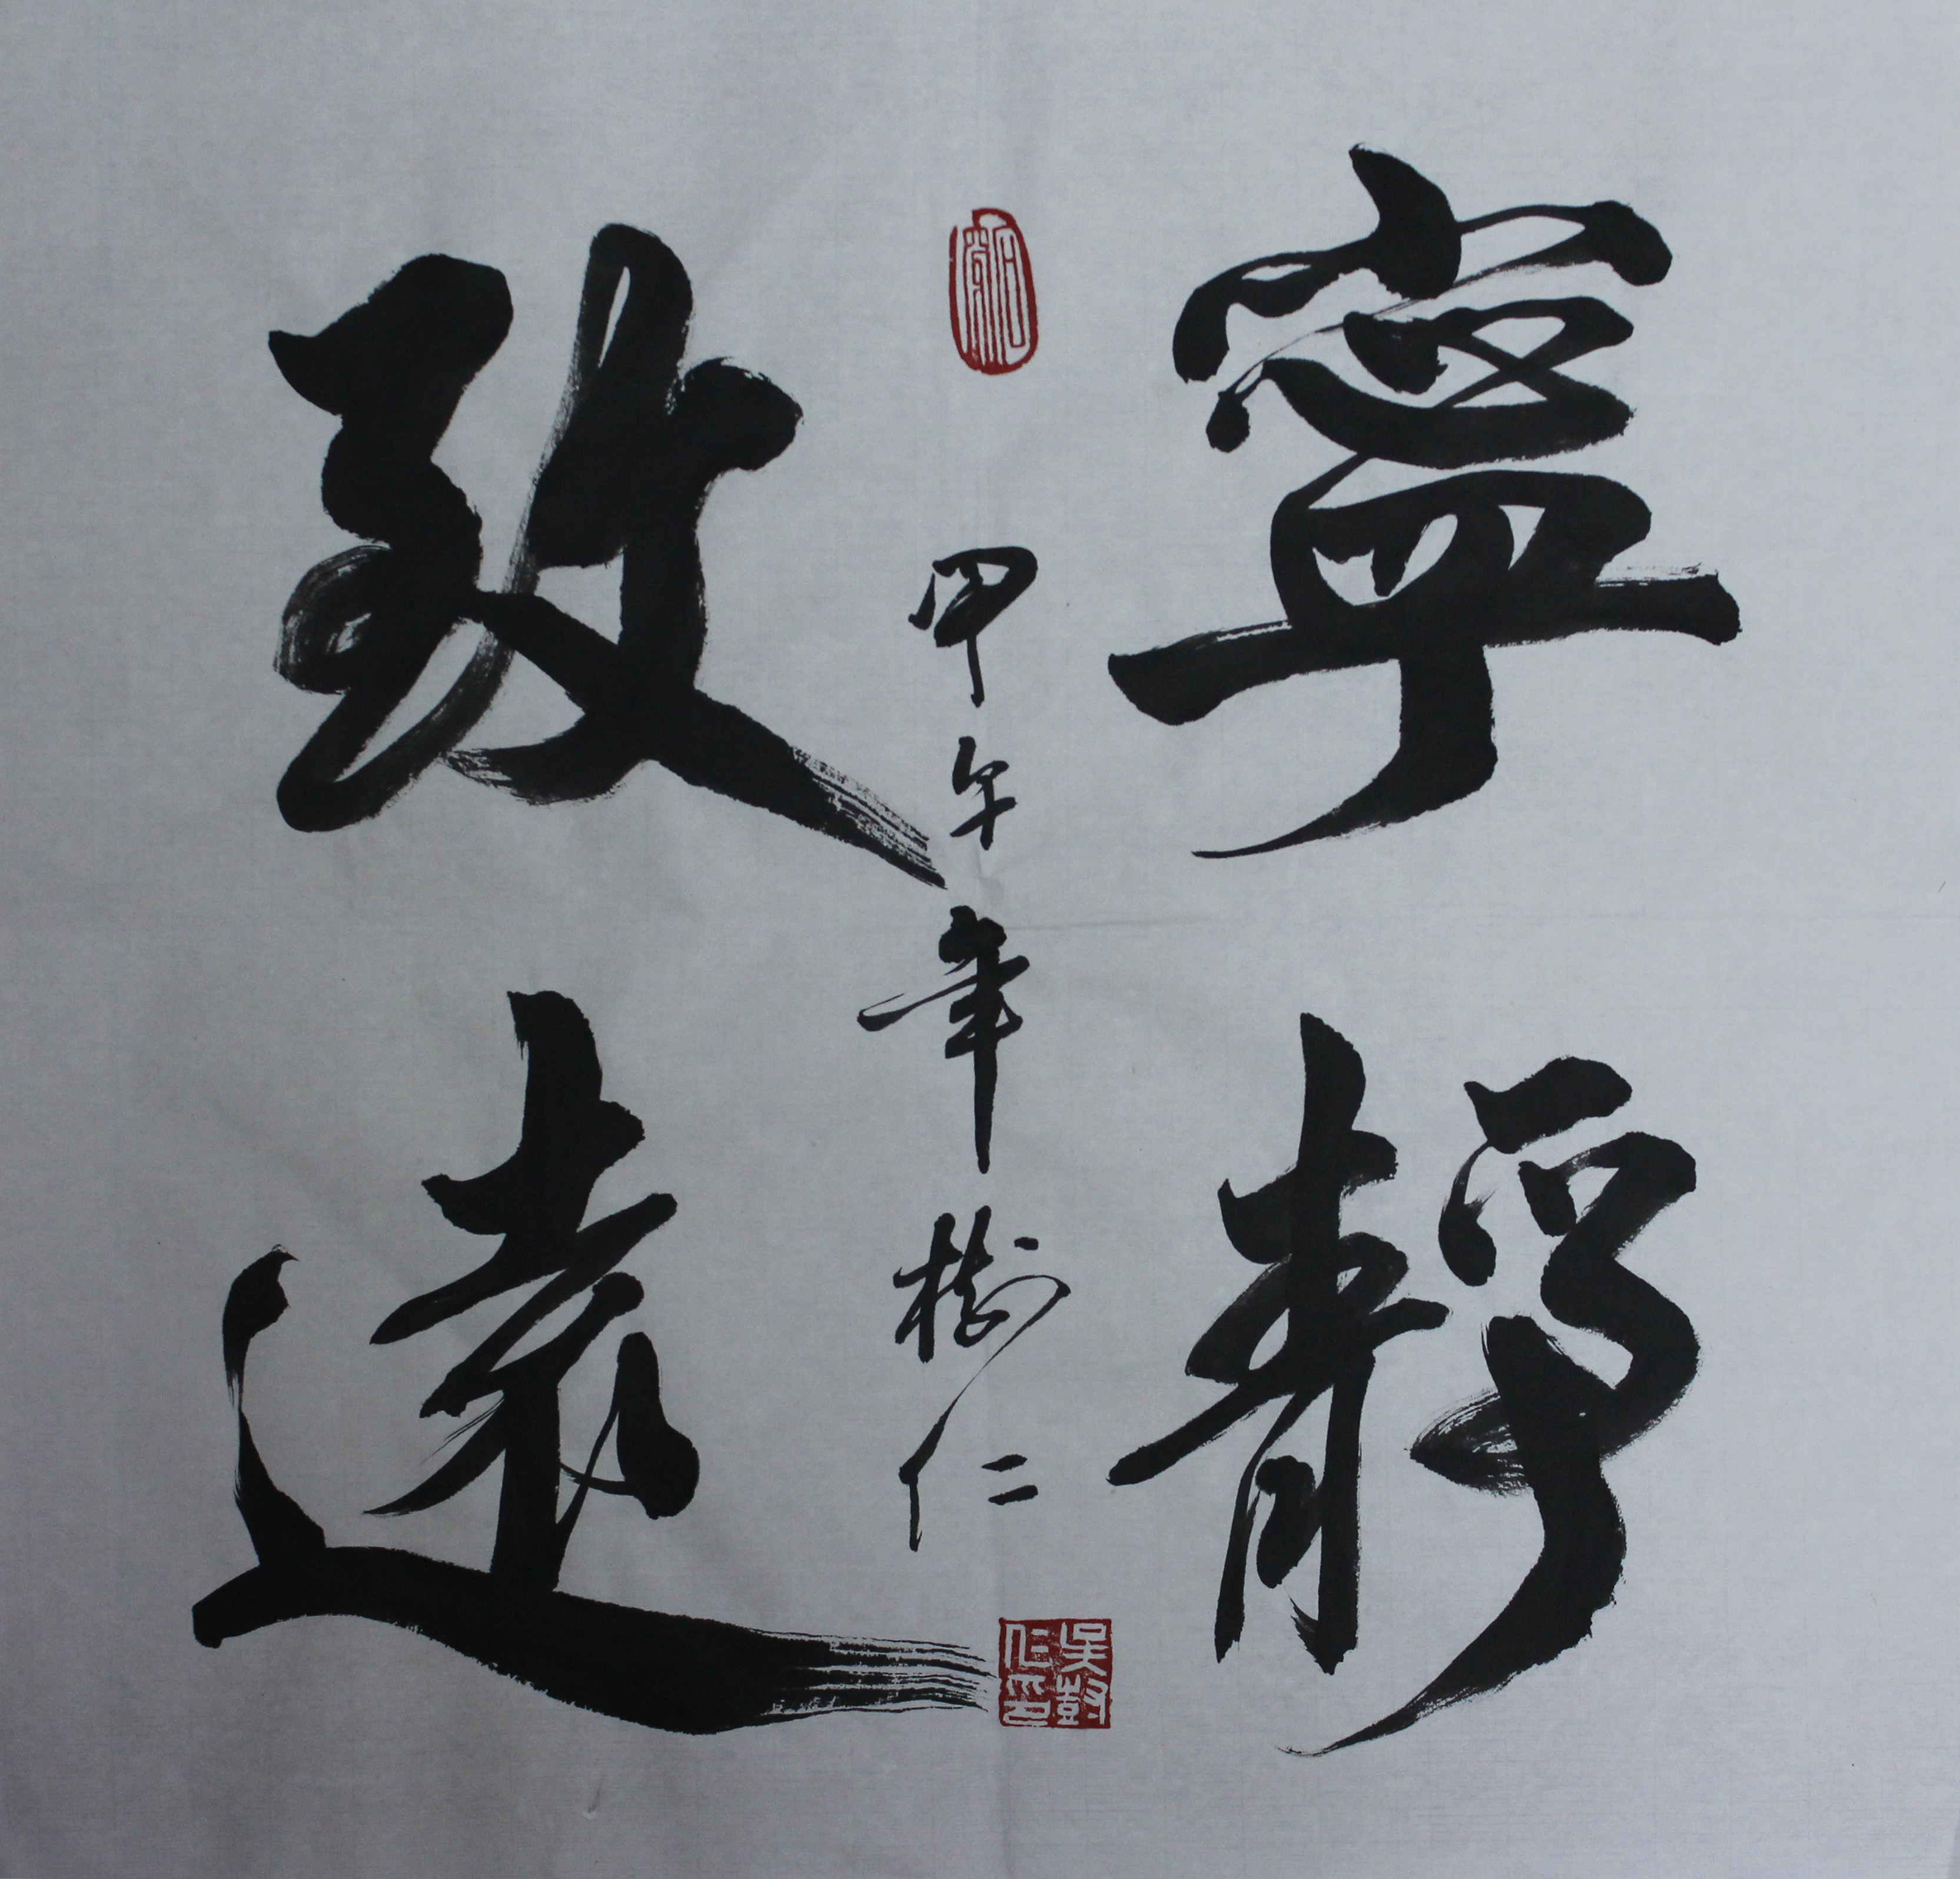 寧靜
致遠
甲午年 樹仁
吳樹仁印